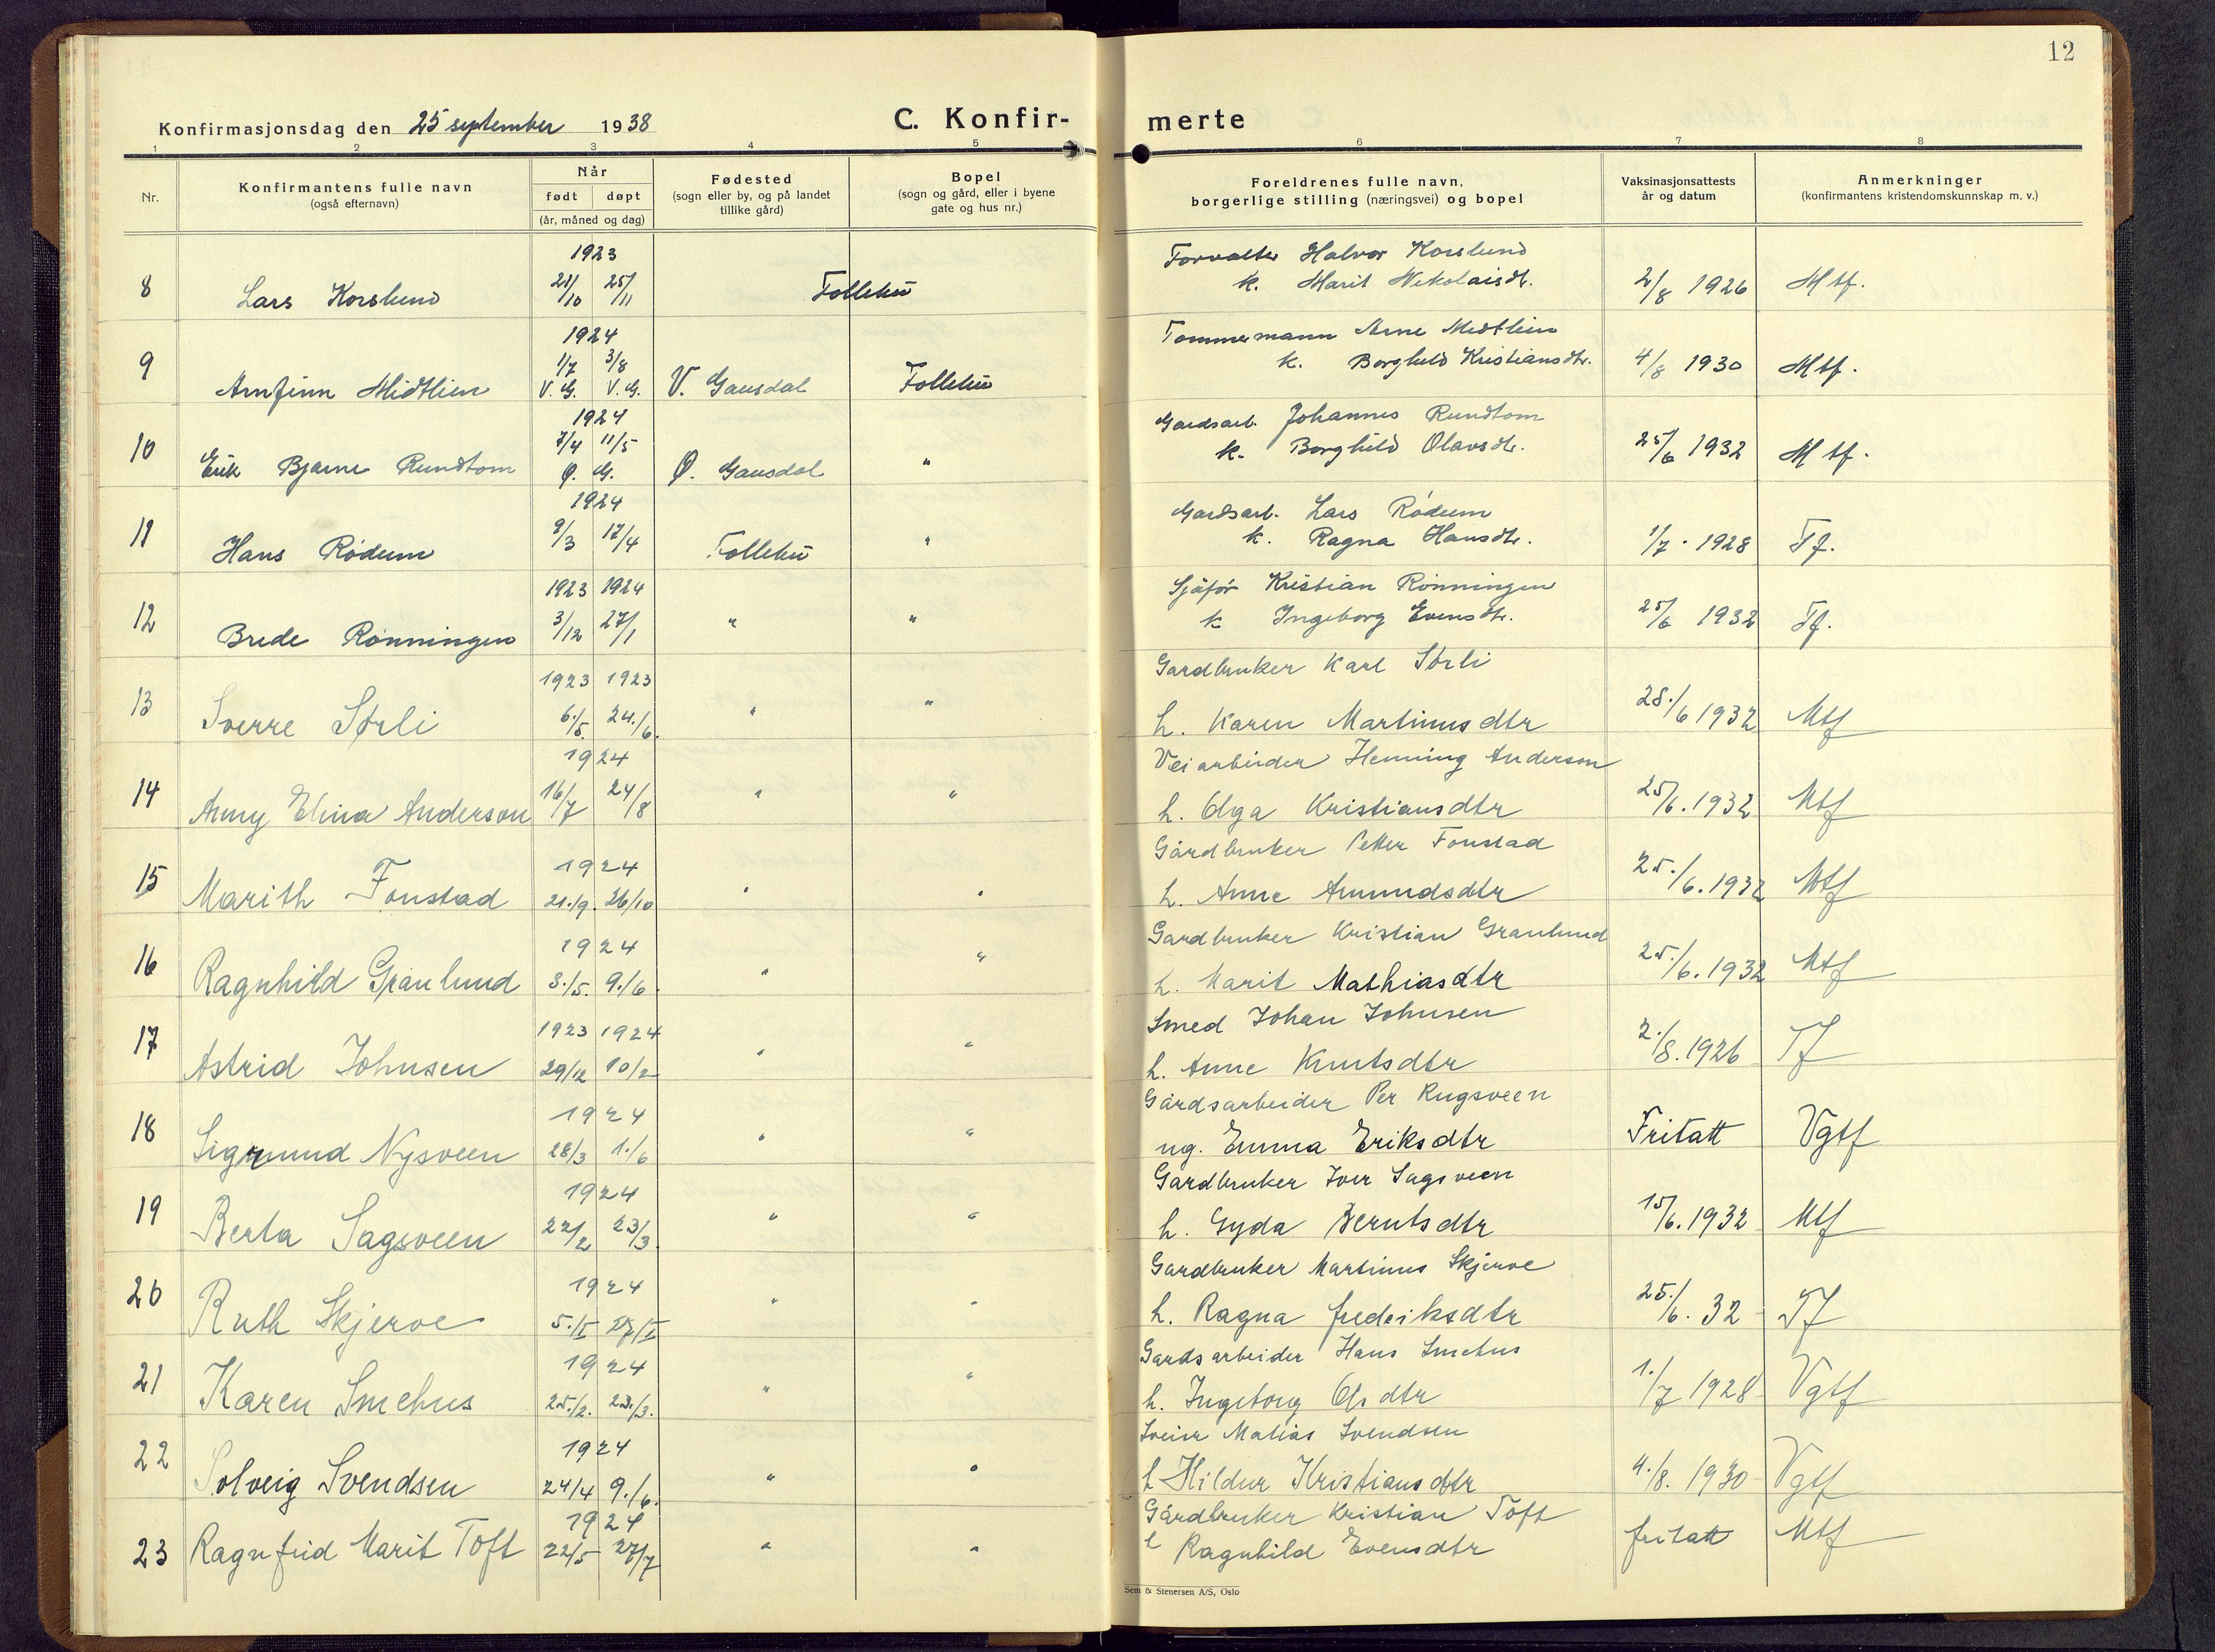 12
Konfirmasjonsdag den 25 september 1938
C. Konfir-
merte
1 2 3 4 5 6 7 8
Nr.
Konfirmantens fulle navn
(også efternavn)
Når
født døpt
(år, måned og dag)
Fødested
(sogn eller by, og på landet
tillike gård)
Bopel
(sogn og gård, eller i byene
gate og hus nr.)
Foreldrenes fulle navn,
borgerlige stilling (næringsvei) og bopel
Vaksinasjonsattests
år og datum
Anmerkninger
(konfirmantens kristendomskunnskap m. v.)
1923 Forvalter Halvor Korslund
8 Lars Korslund 21/10 25/11 Follebu k. Marit Nekolaisdt. 2/8 1926 Mtf.
1924 Tømmermann Arne Midtlien
9 Arnfinn Midtlien 1/7 3/8 V. G. V. G. V. Gausdal Follebu k. Borghild Kristiansdtr. 4/8 1930 Mtf.
1924 Gardsarb. Johannes Rundtom
10 Erik Bjarne Rundtom 7/4 11/5 Ø. G. Ø. Gausdal " k. Borghild Olavsdt. 25/6 1932 Mtf.
1924 Gardsarb. Lars Rødum
11 Hans Rødum 9/3 17/4 Follebu " k. Ragna Hansdtr. 1/7 - 1928 Tf.
1923 1924 Sjåfør Kristian Rønningen
12 Brede Rønningen 3/12 27/1 " " k Ingeborg Evensdtr. 25/6 1932 Tf.
1923 1923 Gardbruker Karl Sørli
13 Sverre Sørli 6./5. 24./6. " " h. Karen Martinusdtr 28./6 1932 Mtf
1924 Veiarbeider Henning Anderson
14 Anny Elina Anderson 16/7 24/8 " " h. Olga Kristiansdtr 25/6. 1932 Mtf
1924 Gårdbruker Petter Fonstad
15 Marith Fonstad 21./9. 26/10 " " h. Anne Amundsdtr 25./6. 1932 Mtf
1924 Gardbruker Kristian Granlund
16 Ragnhild Granlund 3./5. 9./6. " " h. Marit Mathiasdtr 25./6. 1932 Mtf
1923 1924 Smed Johan Johnsen
17 Astrid Johnsen 29/12 10/2 " " h. Anne Knutsdtr 2./8. 1926 Tf
1924 Gårdsarbeider Per Rugsveen
18 Sigmund Nysveen 28/3 1./6 " " ug. Emma Eriksdtr Fritatt Vgtf
1924 Gardbruker Iver Sagsveen
19 Berta Sagsveen 22/2 23/3. " " h. Gyda Berntsdtr 15/6. 1932 Mtf
1924 Gardbruker Martinus Skjerve
20 Ruth Skjerve 5./I 27/I " " h. Ragna frederiksdtr 25./6. 32 Tf
1924 Gardsarbeider Hans Smehus
21 Karen Smehus 25./2. 23./3. " " h. Ingeborg Olsdtr 1./7 1928 Vgtf
1924 Sveiser Matias Svendsen
22 Solveig Svendsen 24/4 9./6. " " h Hildur Kristiansdtr 4./8. 1930 Vgtf
1924 Gårdbruker Kristian Toft
23 Ragnfrid Marit Toft 22/5 27/7 " " h Ragnhild Evensdtr fritatt Mtf
Sem & Stenersen A/S, Oslo